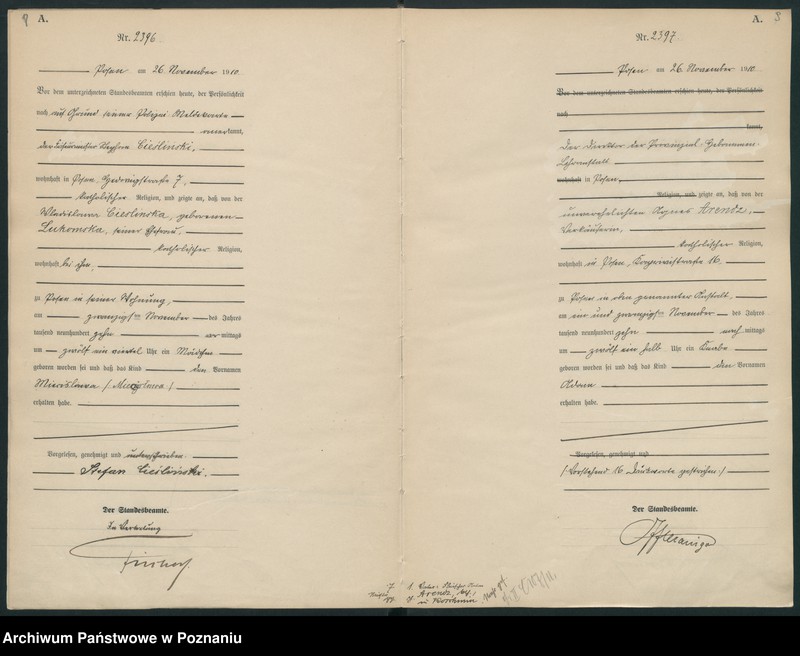 A.
Nr. 2396
Posen am 26 November 1910
Vor dem unterzeichneten Standesbeamten erschien heute, der Persönlichkeit
nach auf Grund seiner Polizei Meldekarte
kannt,
Cieślinski,
wohnhaft in Posen, Hedwigstraße 7,
katholischer Religion, und zeigte an, daß von der
Wladislawa Cieslinska, geborenen
Lukomska, seiner Ehefrau,
katholischer Religion,
wohnhaft bei ihm,
zu Posen in seiner Wohnung,
am zwanzigsten November des Jahres
tausend neunhundert zehn vor mittags
um zwölf ein viertel Uhr ein Mädchen
geboren worden sei und daß das Kind den Vornamen
Miecislawa
erhalten habe.
Vorgelesen, genehmigt und unterschrieben
Stefan Cieśliński.
Der Standesbeamte.
In Vertretung
A.
Nr. 2397
Posen am 26 November 1910
Vor dem unterzeichneten Standesbeamten erschien heute, der Persönlichkeit
nach
kannt,
Der Direktor der Provinzial-Hebammen-
Lehranstalt
wohnhaft in Posen,
Religion, und zeigte an, daß von der
unverehelichten Agnes Arendz,
Verkäuferin,
katholischer Religion,
wohnhaft in Posen, 16
zu Posen in der genannten Anstalt,
am ein und zwanzigsten November des Jahres
tausend neunhundert zehn nach mittags
um zwölf ein halb Uhr ein Knabe
geboren worden sei und daß das Kind den Vornamen
Adam
erhalten habe.
Vorgelesen, genehmigt und
/ Vorstehend 16 Druckworte gestrichen /
Der Standesbeamte.
Arendz,
in Koschmin
Archiwum Państwowe w Poznaniu